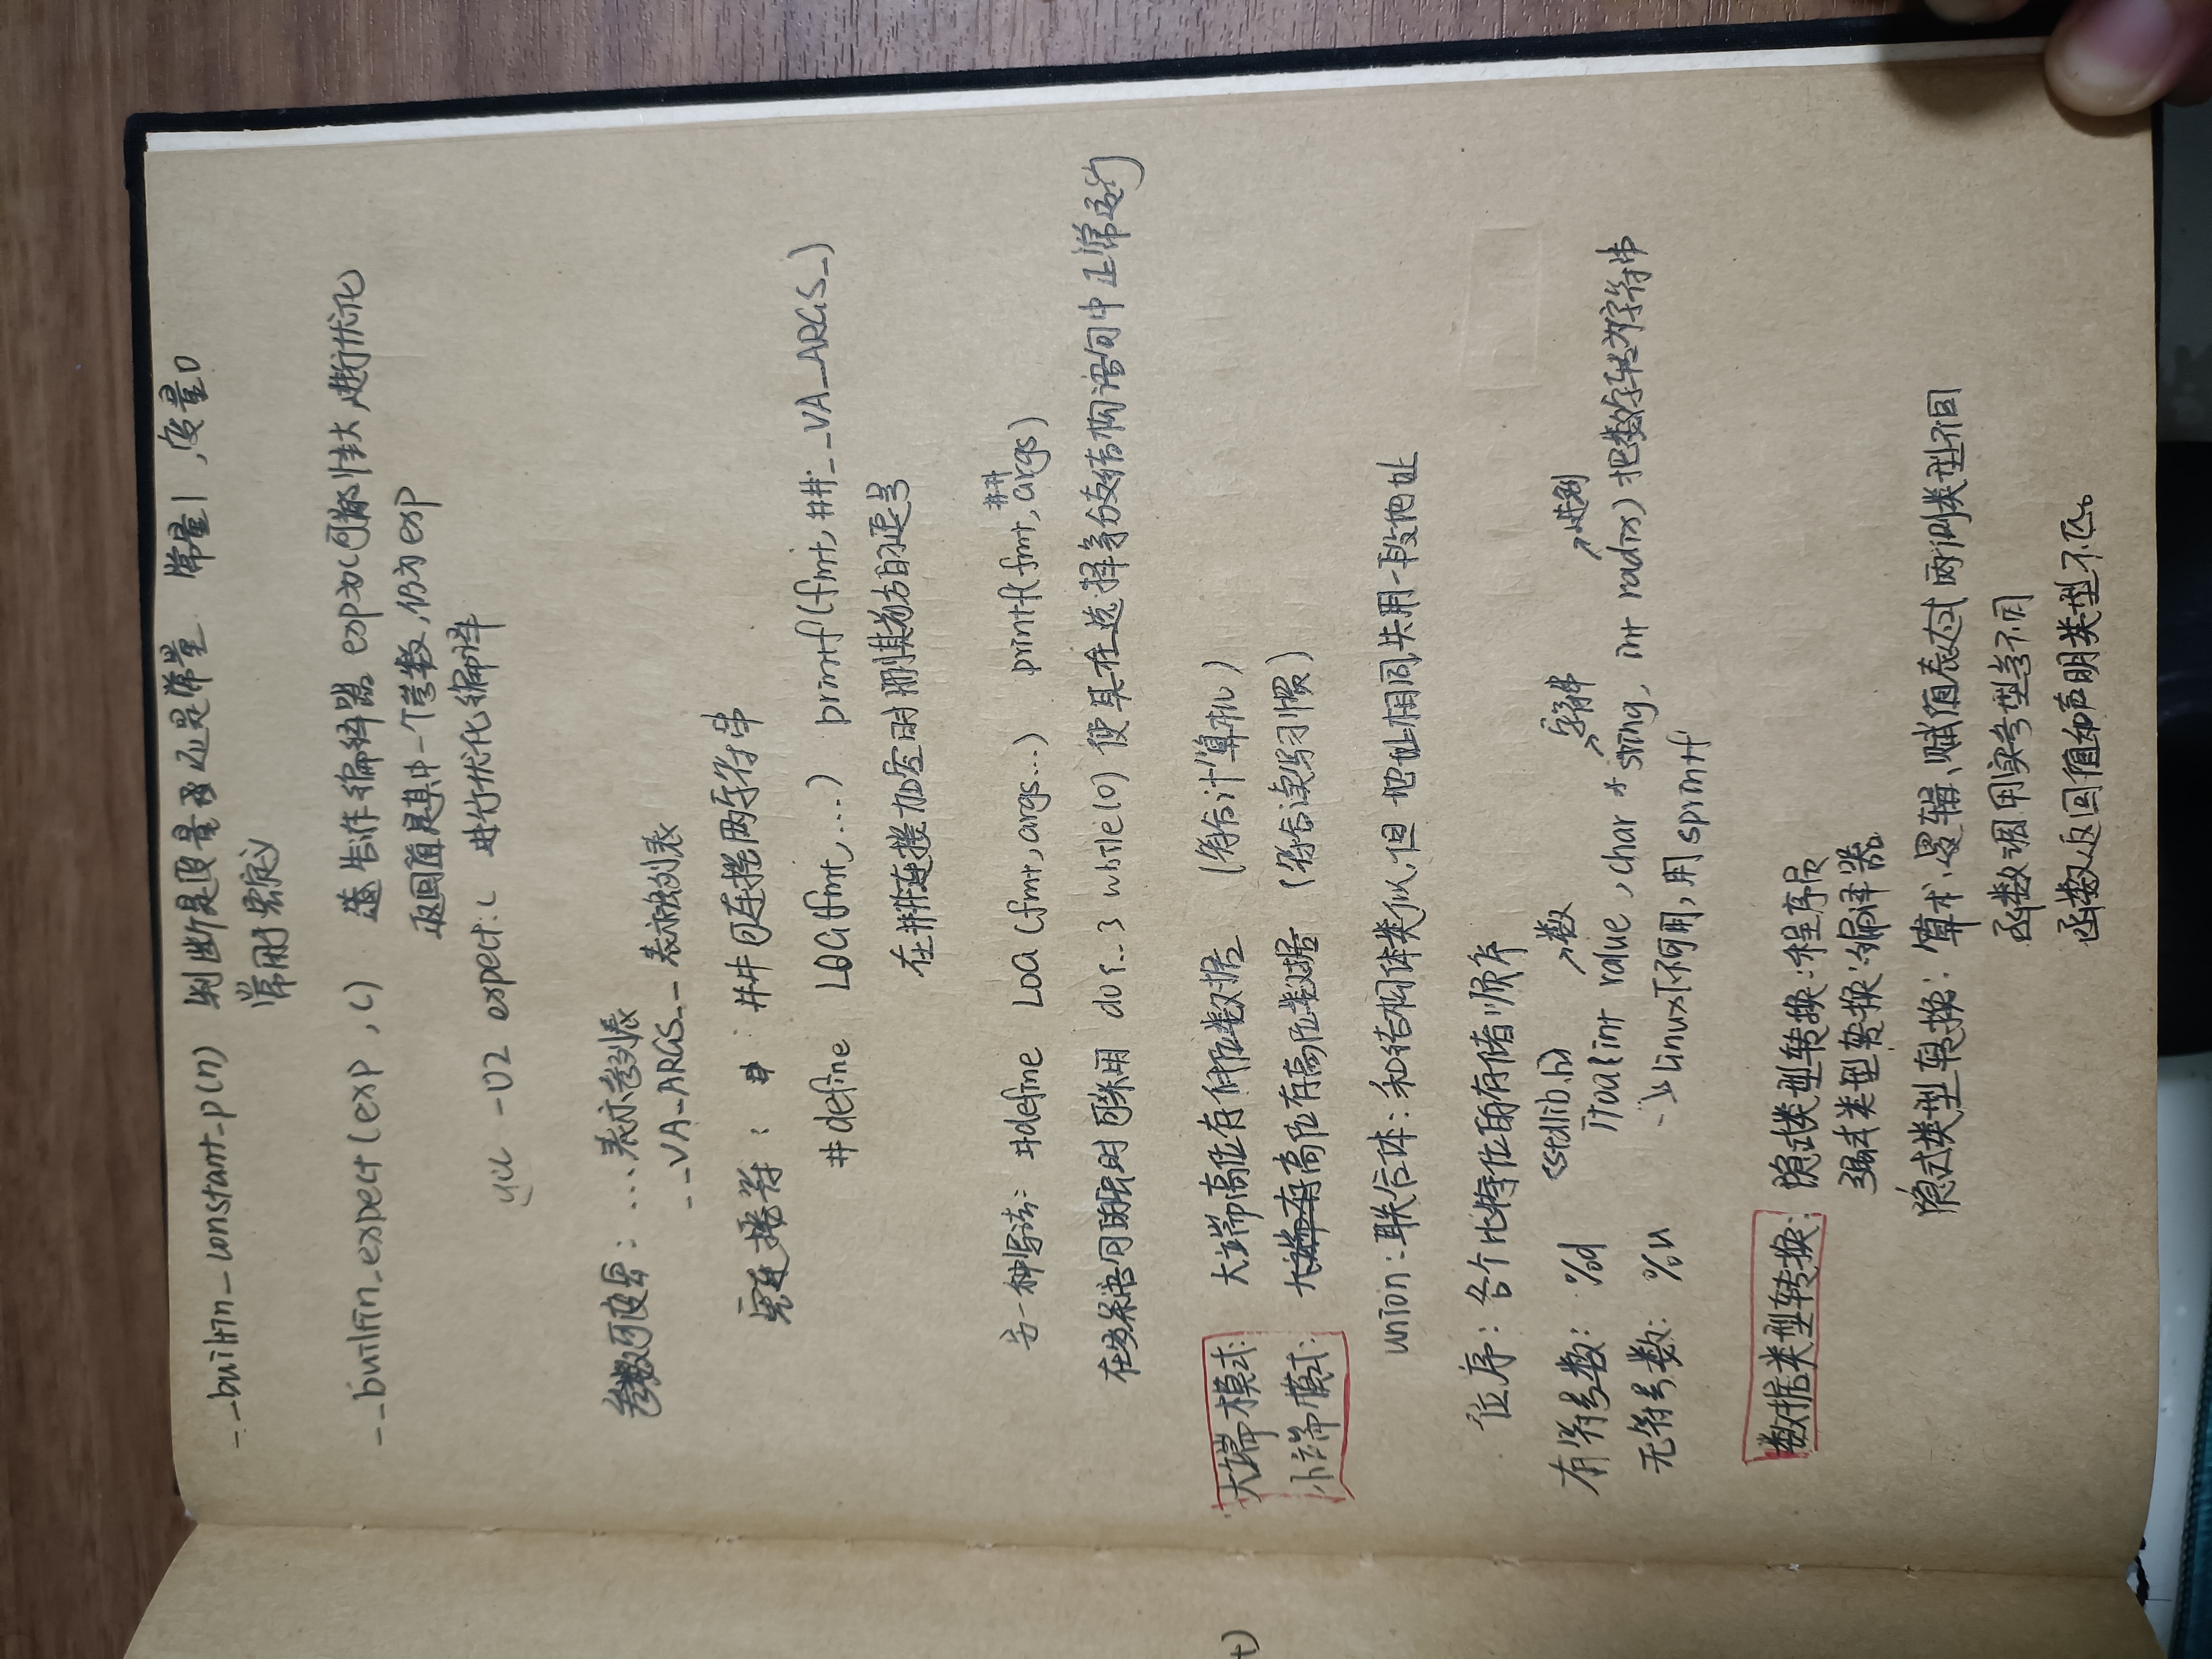 __builtin_constant_p(n) 判断是变量还是常量 常量1,变量0
常用于宏定义
__builtin_expect(exp,c) 告诉编译器 exp为c可能性大,进行优化
返回值是其中一个参数,仍为exp
gcc -O2 expect.c 进行优化编译
参数可变宏:...表示参列表
__VA_ARGS__表示参数列表
宏连接符: ## 可连接两字符串
#define LOG(fmt,...) printf(fmt,##__VA_ARGS_)
在##连接为空时删其前方的逗号
另一种写法: #define LOG(fmt,args...) printf(fmt,##args)
在多条语句时 可采用 do{...}while(0) 使其在选择等分支结构语句中正常运行
大端模式: 大端高位存低位数据 (符合计算机)
小端模式: 高位存高位数据 (符合读写习惯)
union:联合体:和结构体类似,但地址相同,共用一段地址
位序:各个比特位的存储顺序
有符号数: %d <stdlib.h> 数 字符串 进制
itoa(int value,char * string, int radix) 把数字转为字符串
无符号数: %u Linux下不可用,用sprintf
数据类型转换: 隐式类型转换:程序员
强制类型转换:编译器
隐式类型转换:算术、逻辑、赋值表达式两侧类型不同
函数调用实参型参不同
函数返回值和声明类型不匹。
t)